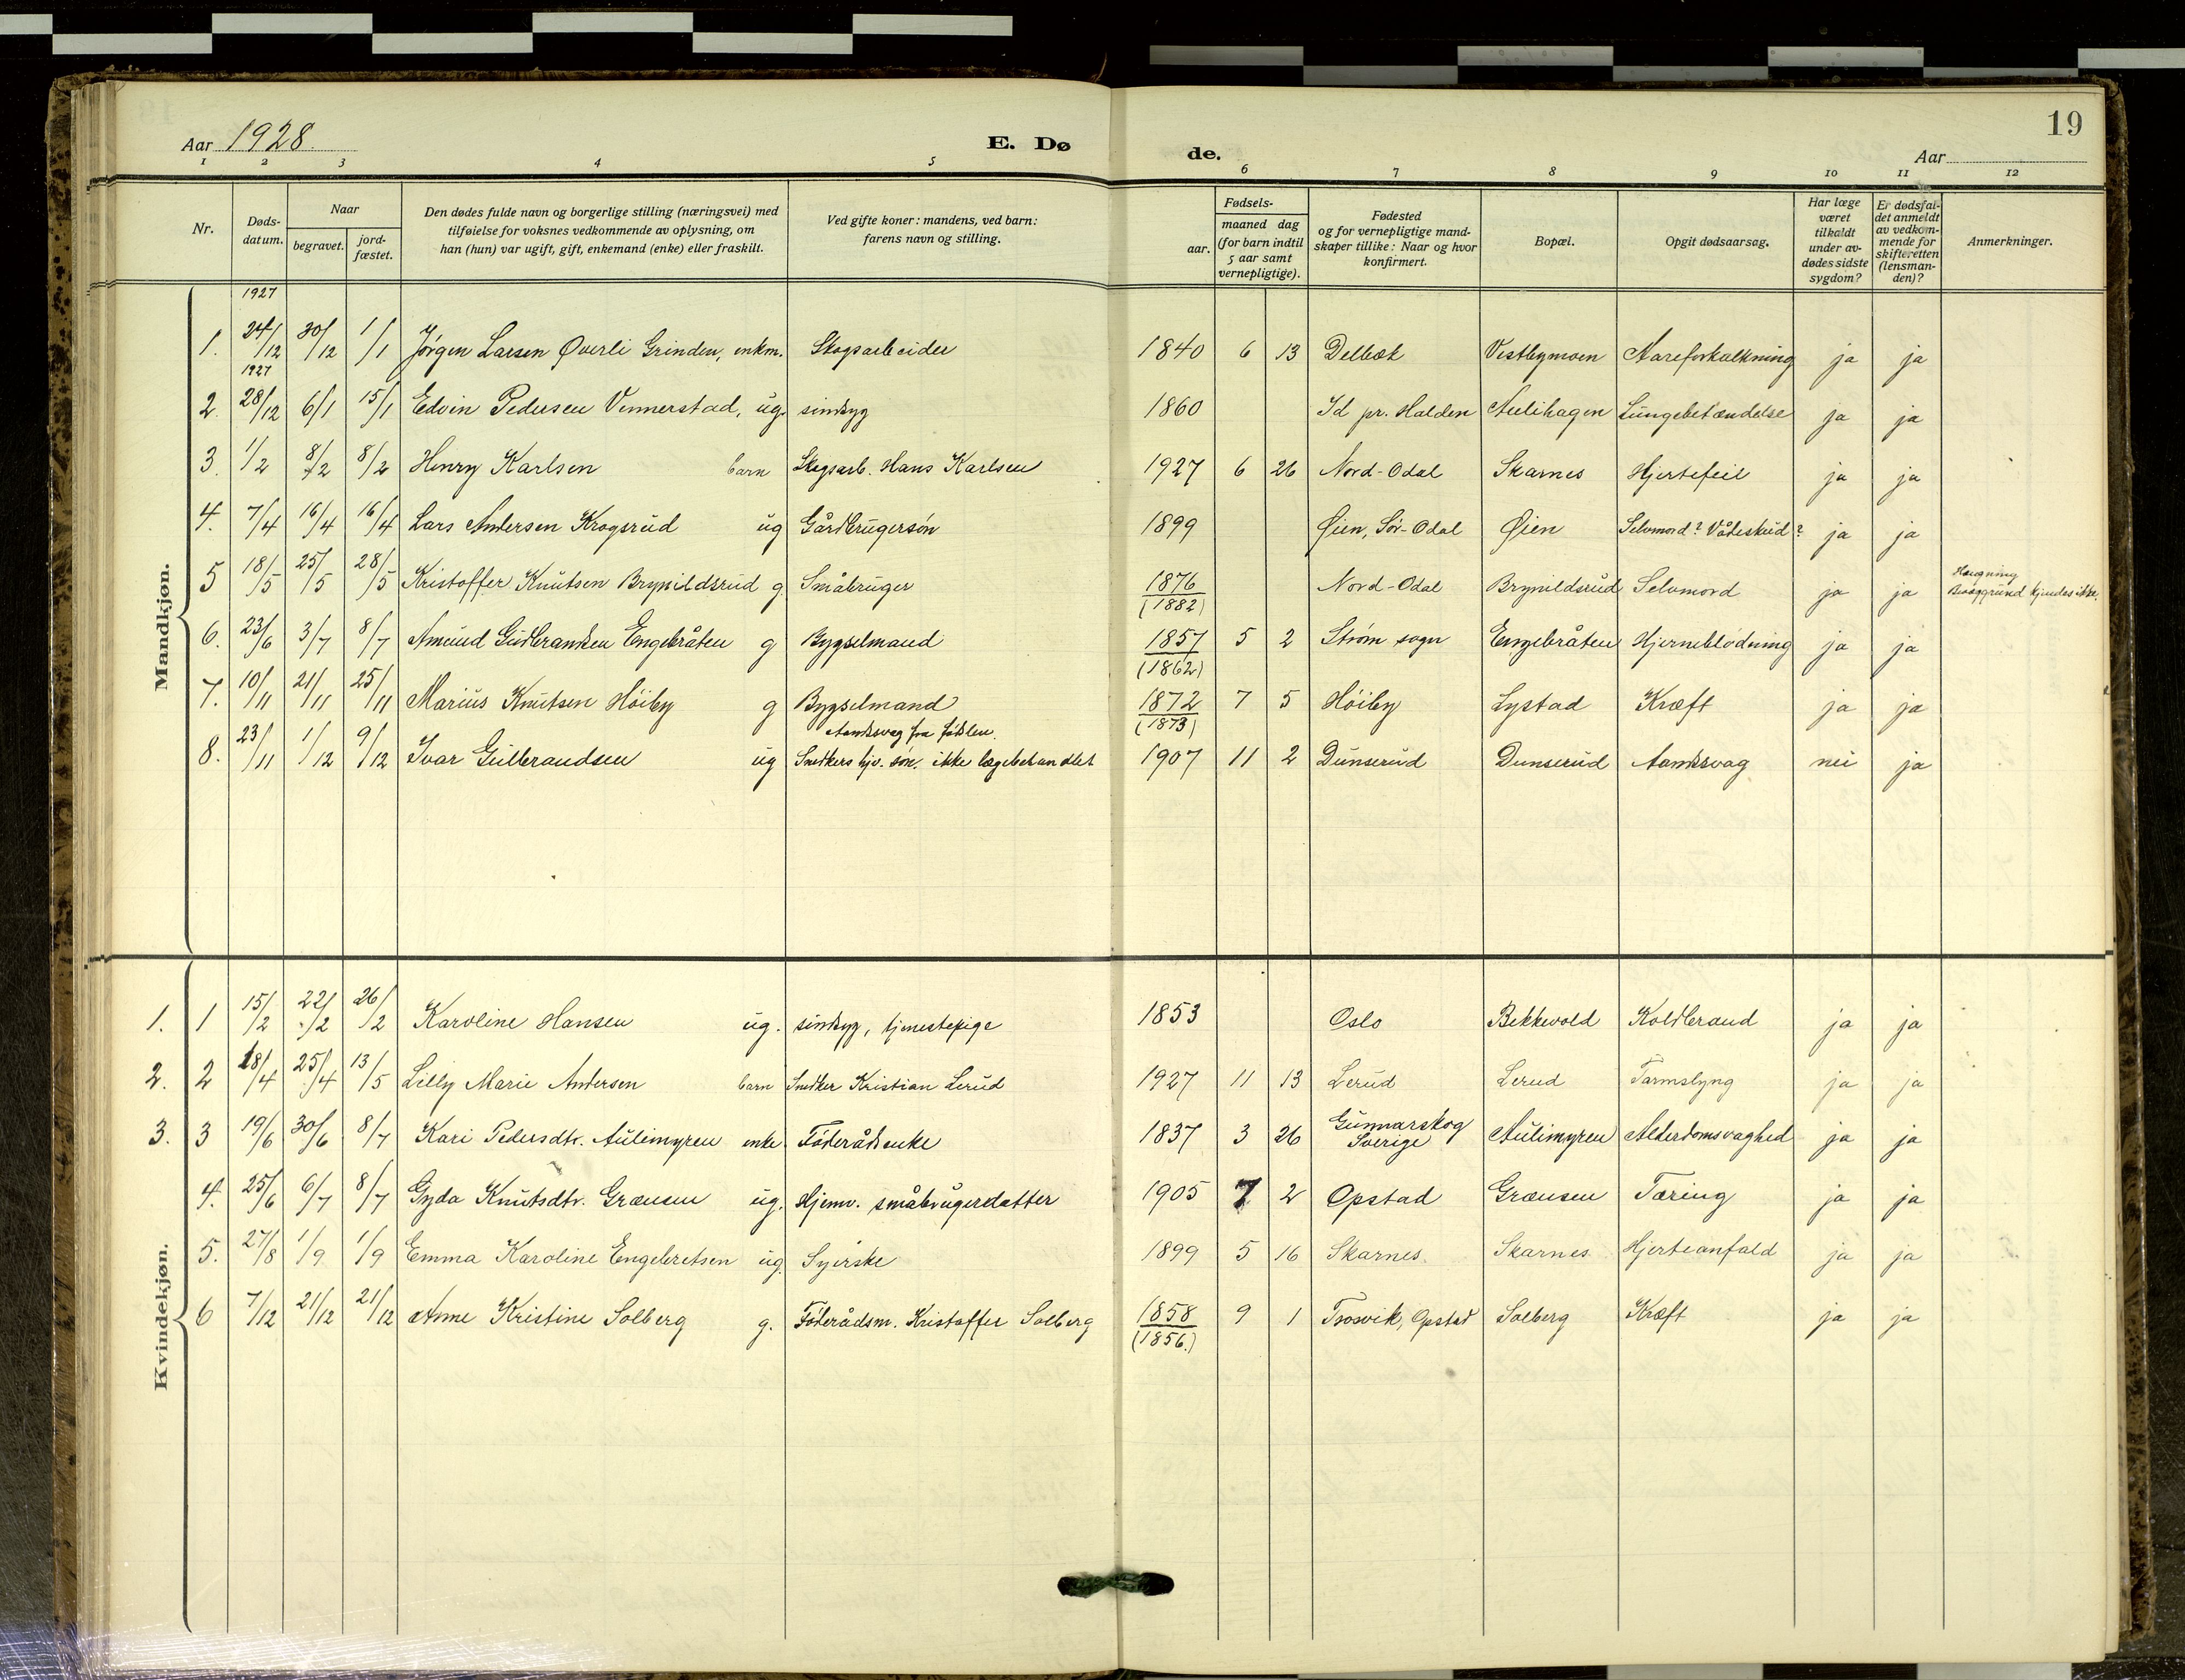 19
Aar 1928. E. Dø de. Aar
1 2 3 4 5 6 7 8 9 10 11 12
Nr. Døds-datum. Naar begravet. jord-fæstet. Den dødes fulde navn og borgerlige stilling (næringsvei) med tilføielse for voksnes vedkommende av oplysning, om han (hun) var ugift, gift, enkemand (enke) eller fraskilt. Ved gifte koner: mandens, ved barn: farens navn og stilling. Fødsels- aar. maaned dag (for barn indtil 5 aar samt vernepligtige). Fødested og for vernepligtige mand-skaper tillike: Naar og hvor konfirmert. Bopæl. Opgit dødsaarsag. Har læge været tilkaldt under av-dødes sidste sygdom? Er dødsfal-det anmeldt av vedkom-mende for skifteretten (lensman-den)? Anmerkninger.
Mandkjøn.
1927
1. 24/12 30/12 1/1 Jørgen Larsen Øverli Grinden, enkm. Skogsarbeider 1840 6 13 Delbæk Vestbymoen Aareforkalkning ja ja
1927
2. 28/12 6/1 15/1 Edvin Pedersen Vennerstad, ug. sindsyg 1860 Id pr. Halden Aulihagen Lungebetændelse ja ja
3. 1/2 8/2 8/2 Henry Karlsen barn Skogsarb. Hans Karlsen 1927 6 26 Nord-Odal Skarnes Hjertefeil ja ja
4. 7/4 16/4 16/4 Lars Andersen Krogsrud ug Gårdbrugersøn 1899 Øien, Sør-Odal Øien Selvmord? Vådeskud? ja ja
5 18/5 25/5 28/5 Kristoffer Knutsen Brynildsrud g Småbruger 1876 (1882) Nord-Odal Brynildsrud Selvmord ja ja Hængning kjendes ikke.
6. 23/6 3/7 8/7 Amund Gudbrandsen Engebråten g Bygselmand 1857 (1862) 5 2 Strøm sogn Engebråten Hjerneblødning ja ja
7. 10/11 21/11 25/11 Marius Knutsen Høiby g Bygselmand 1872 (1873) 7 5 Høiby Lystad Kræft ja ja
Aandssvag fra fødslen.
8. 23/11 1/12 9/12 Ivar Gulbrandsen ug Snedkers hjv. søn. ikke lægebehandlet 1907 11 2 Dunserud Dunserud Aandssvag nei ja
Kvindekjøn.
1. 1 15/2 22/2 26/2 Karoline Hansen ug. sindsyg, tjenestepige 1853 Oslo Bekkevold Koldbrand ja ja
2. 2 18/4 25/4 13/5 Lilly Marie Andersen barn Snedker Kristian Lerud 1927 11 13 Lerud Lerud Tarmslyng ja ja
3. 3 19/6 30/6 8/7 Kari Pedersdtr. Aulimyren enke Føderådsenke 1837 3 26 Gunnarskog Sverige Aulimyren Alderdomsvaghed ja ja
4. 25/6 6/7 8/7 Gyda Knutsdtr. Grænsen ug. Hjemv. småbrugerdatter 1905 7 2 Opstad Grænsen Tæring ja ja
5. 27/8 1/9 1/9 Emma Karoline Engebretsen ug. Syerske 1899 5 16 Skarnes. Skarnes Hjerteanfald ja ja
6 7/12 21/12 21/12 Anne Kristine Solberg g. Føderådsm. Kristoffer Solberg 1858 (1856.) 9 1 Trosvik, Opstad Solberg Kræft ja ja